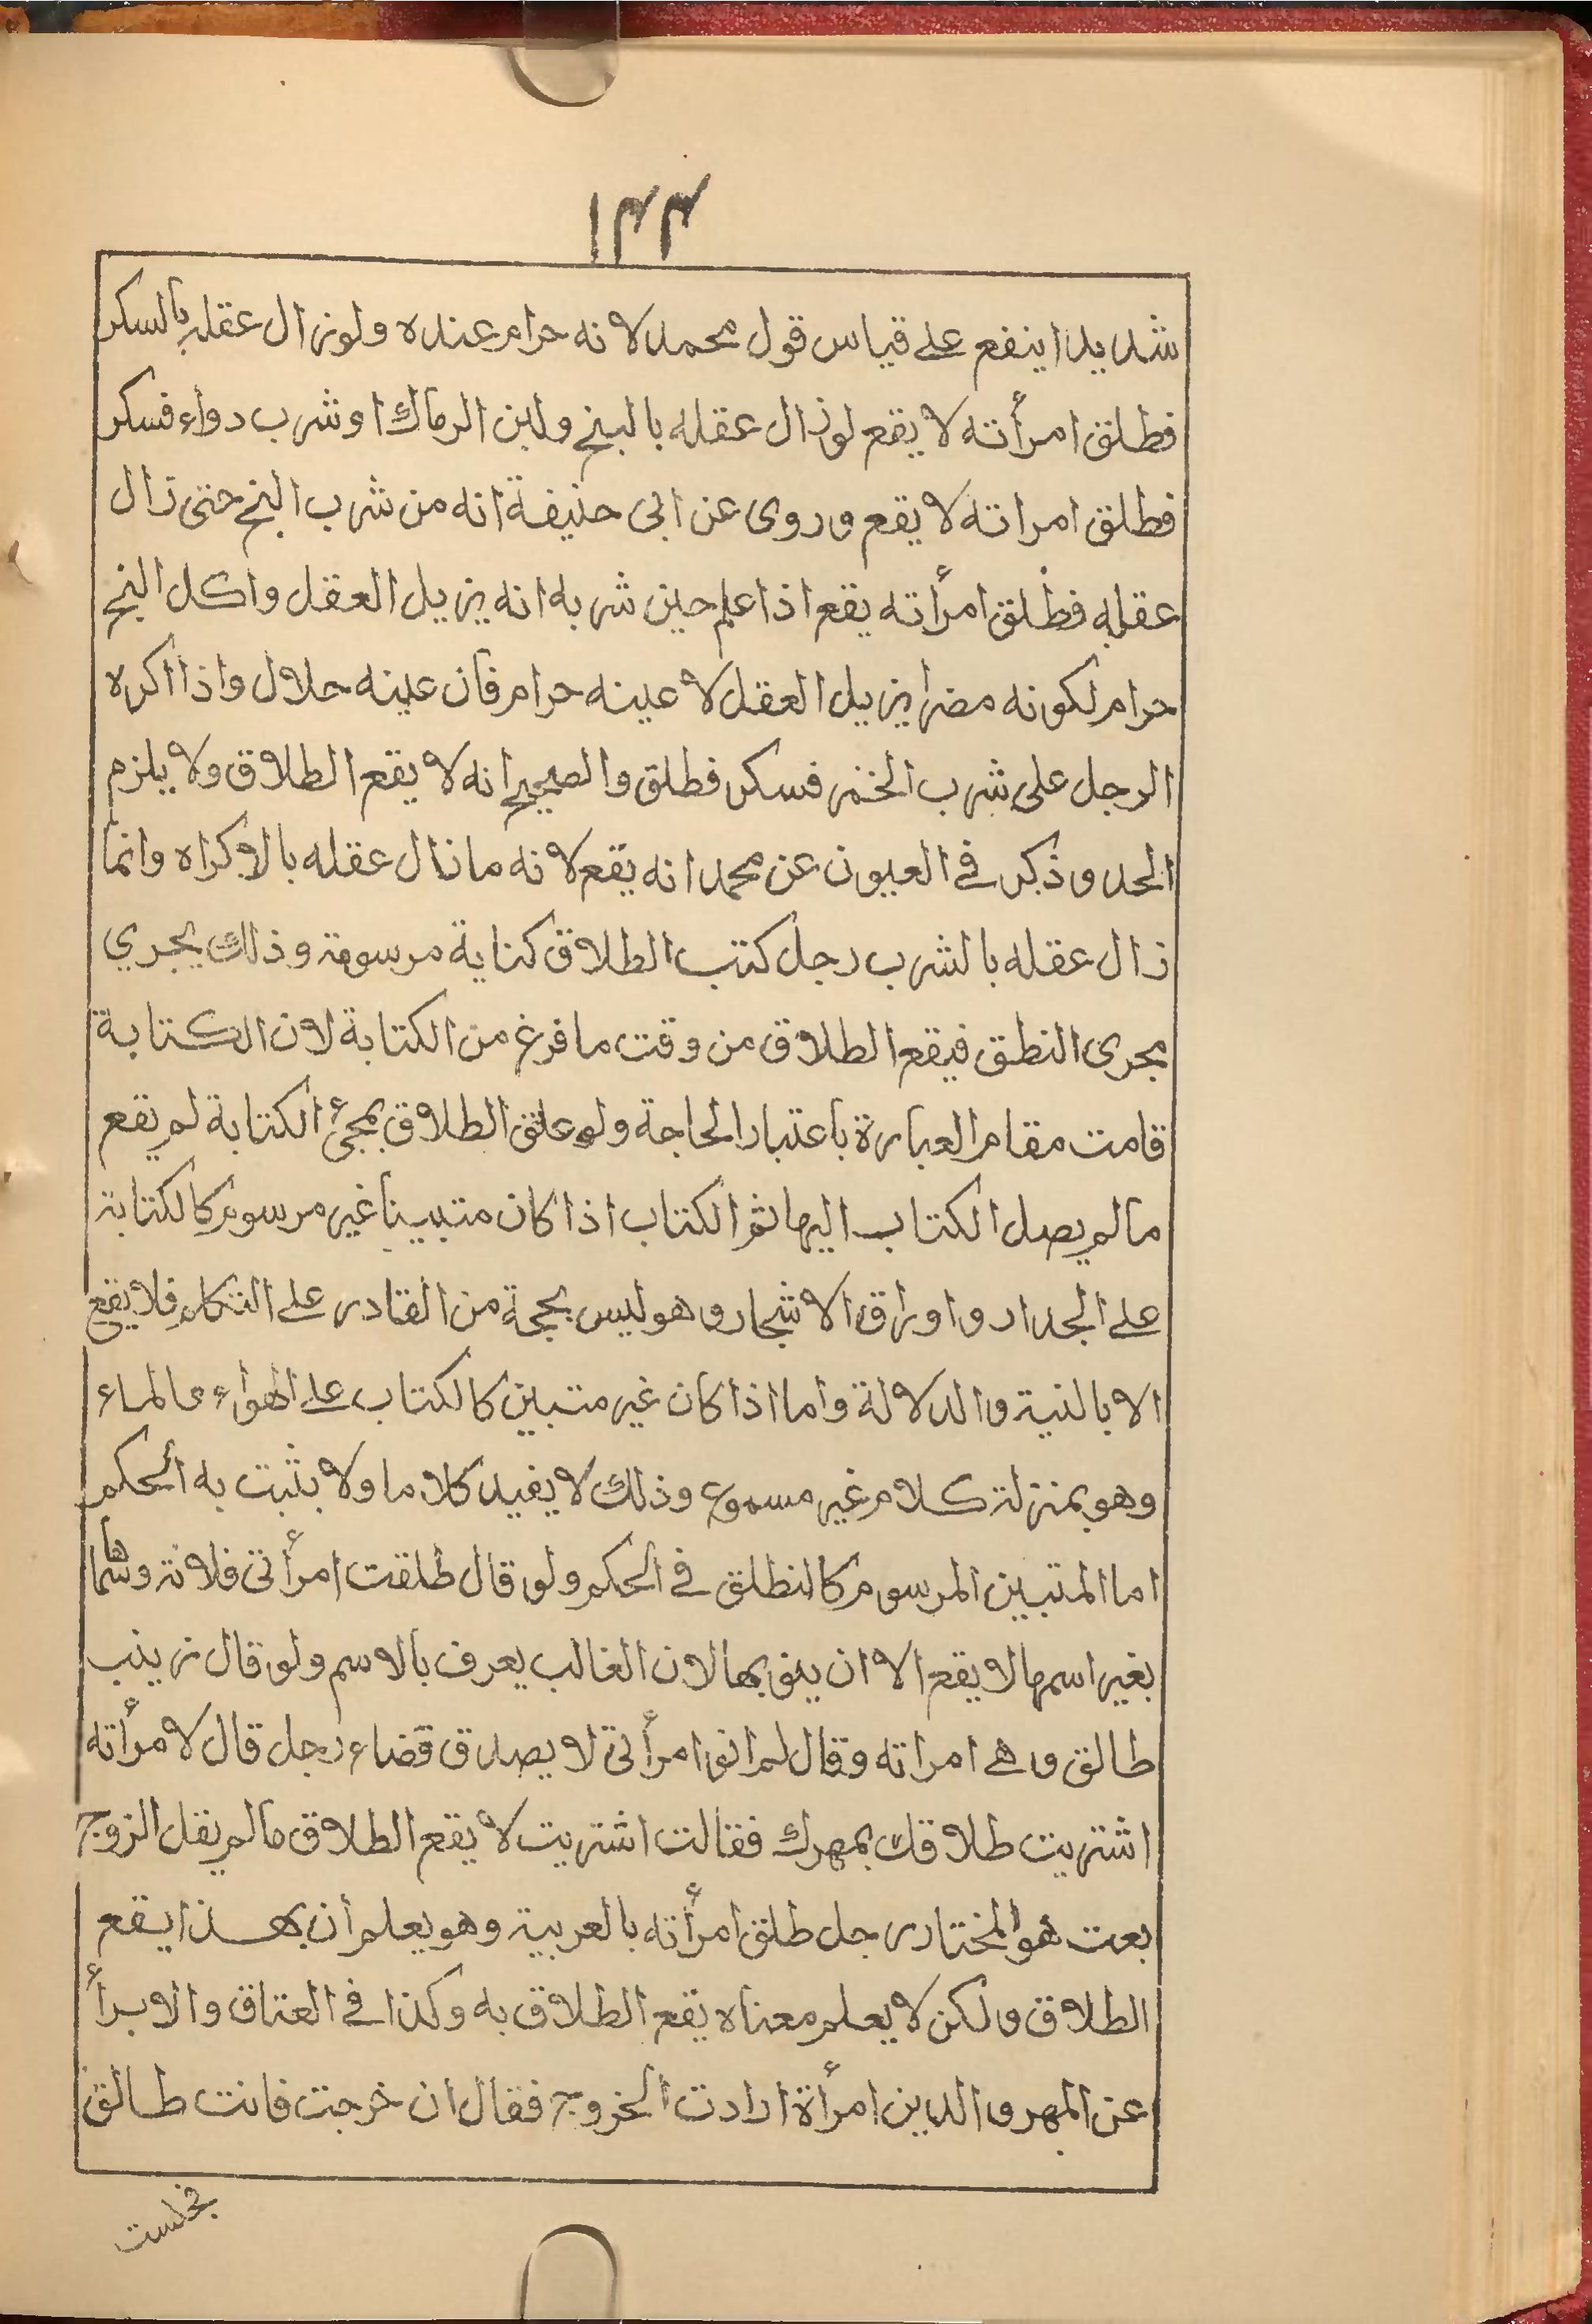 ١٣٣
شديدا ينفع على قياس قول محمد لانه حرام عنده ولو زال عقله بالسكر
فطلق امرأته لا يقع لو زال عقله بالبنج ولبن الرماك او شرب دواء فسكر
فطلق امراته لا يقع وروى عن ابى حنيفة انه من شرب البنج حتى زال
عقله فطلق امرأته يقع اذا علم حين شربه انه يزيل العقل واكل البنج
حرام لكونه مضرا يزيل العقل لا عينه حرام فان عينه حلال واذا اكره
الرجل على شرب الخمر فسكر فطلق والصحيح انه لا يقع الطلاق ولا يلزم
الحد وذكر في العيون عن محمد انه يقع لانه ما زال عقله بالاكراه وانما
زال عقله بالشرب رجل كتب الطلاق كتابة مرسومة وذلك يجري
مجرى النطق فيقع الطلاق من وقت ما فرغ من الكتابة لان الكتابة
قامت مقام العبارة باعتبار الحاجة ولو علق الطلاق بمجئ الكتابة لم يقع
ما لم يصل الكتاب اليها ثم الكتاب اذا كان متبينا غير مرسوم كالكتابة
على الجدار واوراق الاشجار وهو ليس بحجة من القادر على التكلم فلا يقع
الا بالنية والدلالة واما اذا كان غير متبين كالكتاب على الهواء والماء
وهو بمنزلة كلام غير مسموع وذلك لا يفيد كلاما ولا يثبت به الحكم
اما المتبين المرسوم كالنطق في الحكم ولو قال طلقت امرأتى فلانة وسماها
بغير اسمها لا يقع الا ان ينوي بها لان الغالب يعرف بالاسم ولو قال زينب
طالق وهي امراته وقال لم انو امرأتى لا يصدق قضاء رجل قال لامرأته
اشتريت طلاقك بمهرك فقالت اشتريت لا يقع الطلاق ما لم يقل الزوج
بعت هو المختار رجل طلق امرأته بالعربية وهو يعلم ان بهذا يقع
الطلاق ولكن لا يعلم معناه يقع الطلاق به وكذا في العتاق والابرأ
عن المهر والدين امرأة ارادت الخروج فقال ان خرجت فانت طالق
فجلست